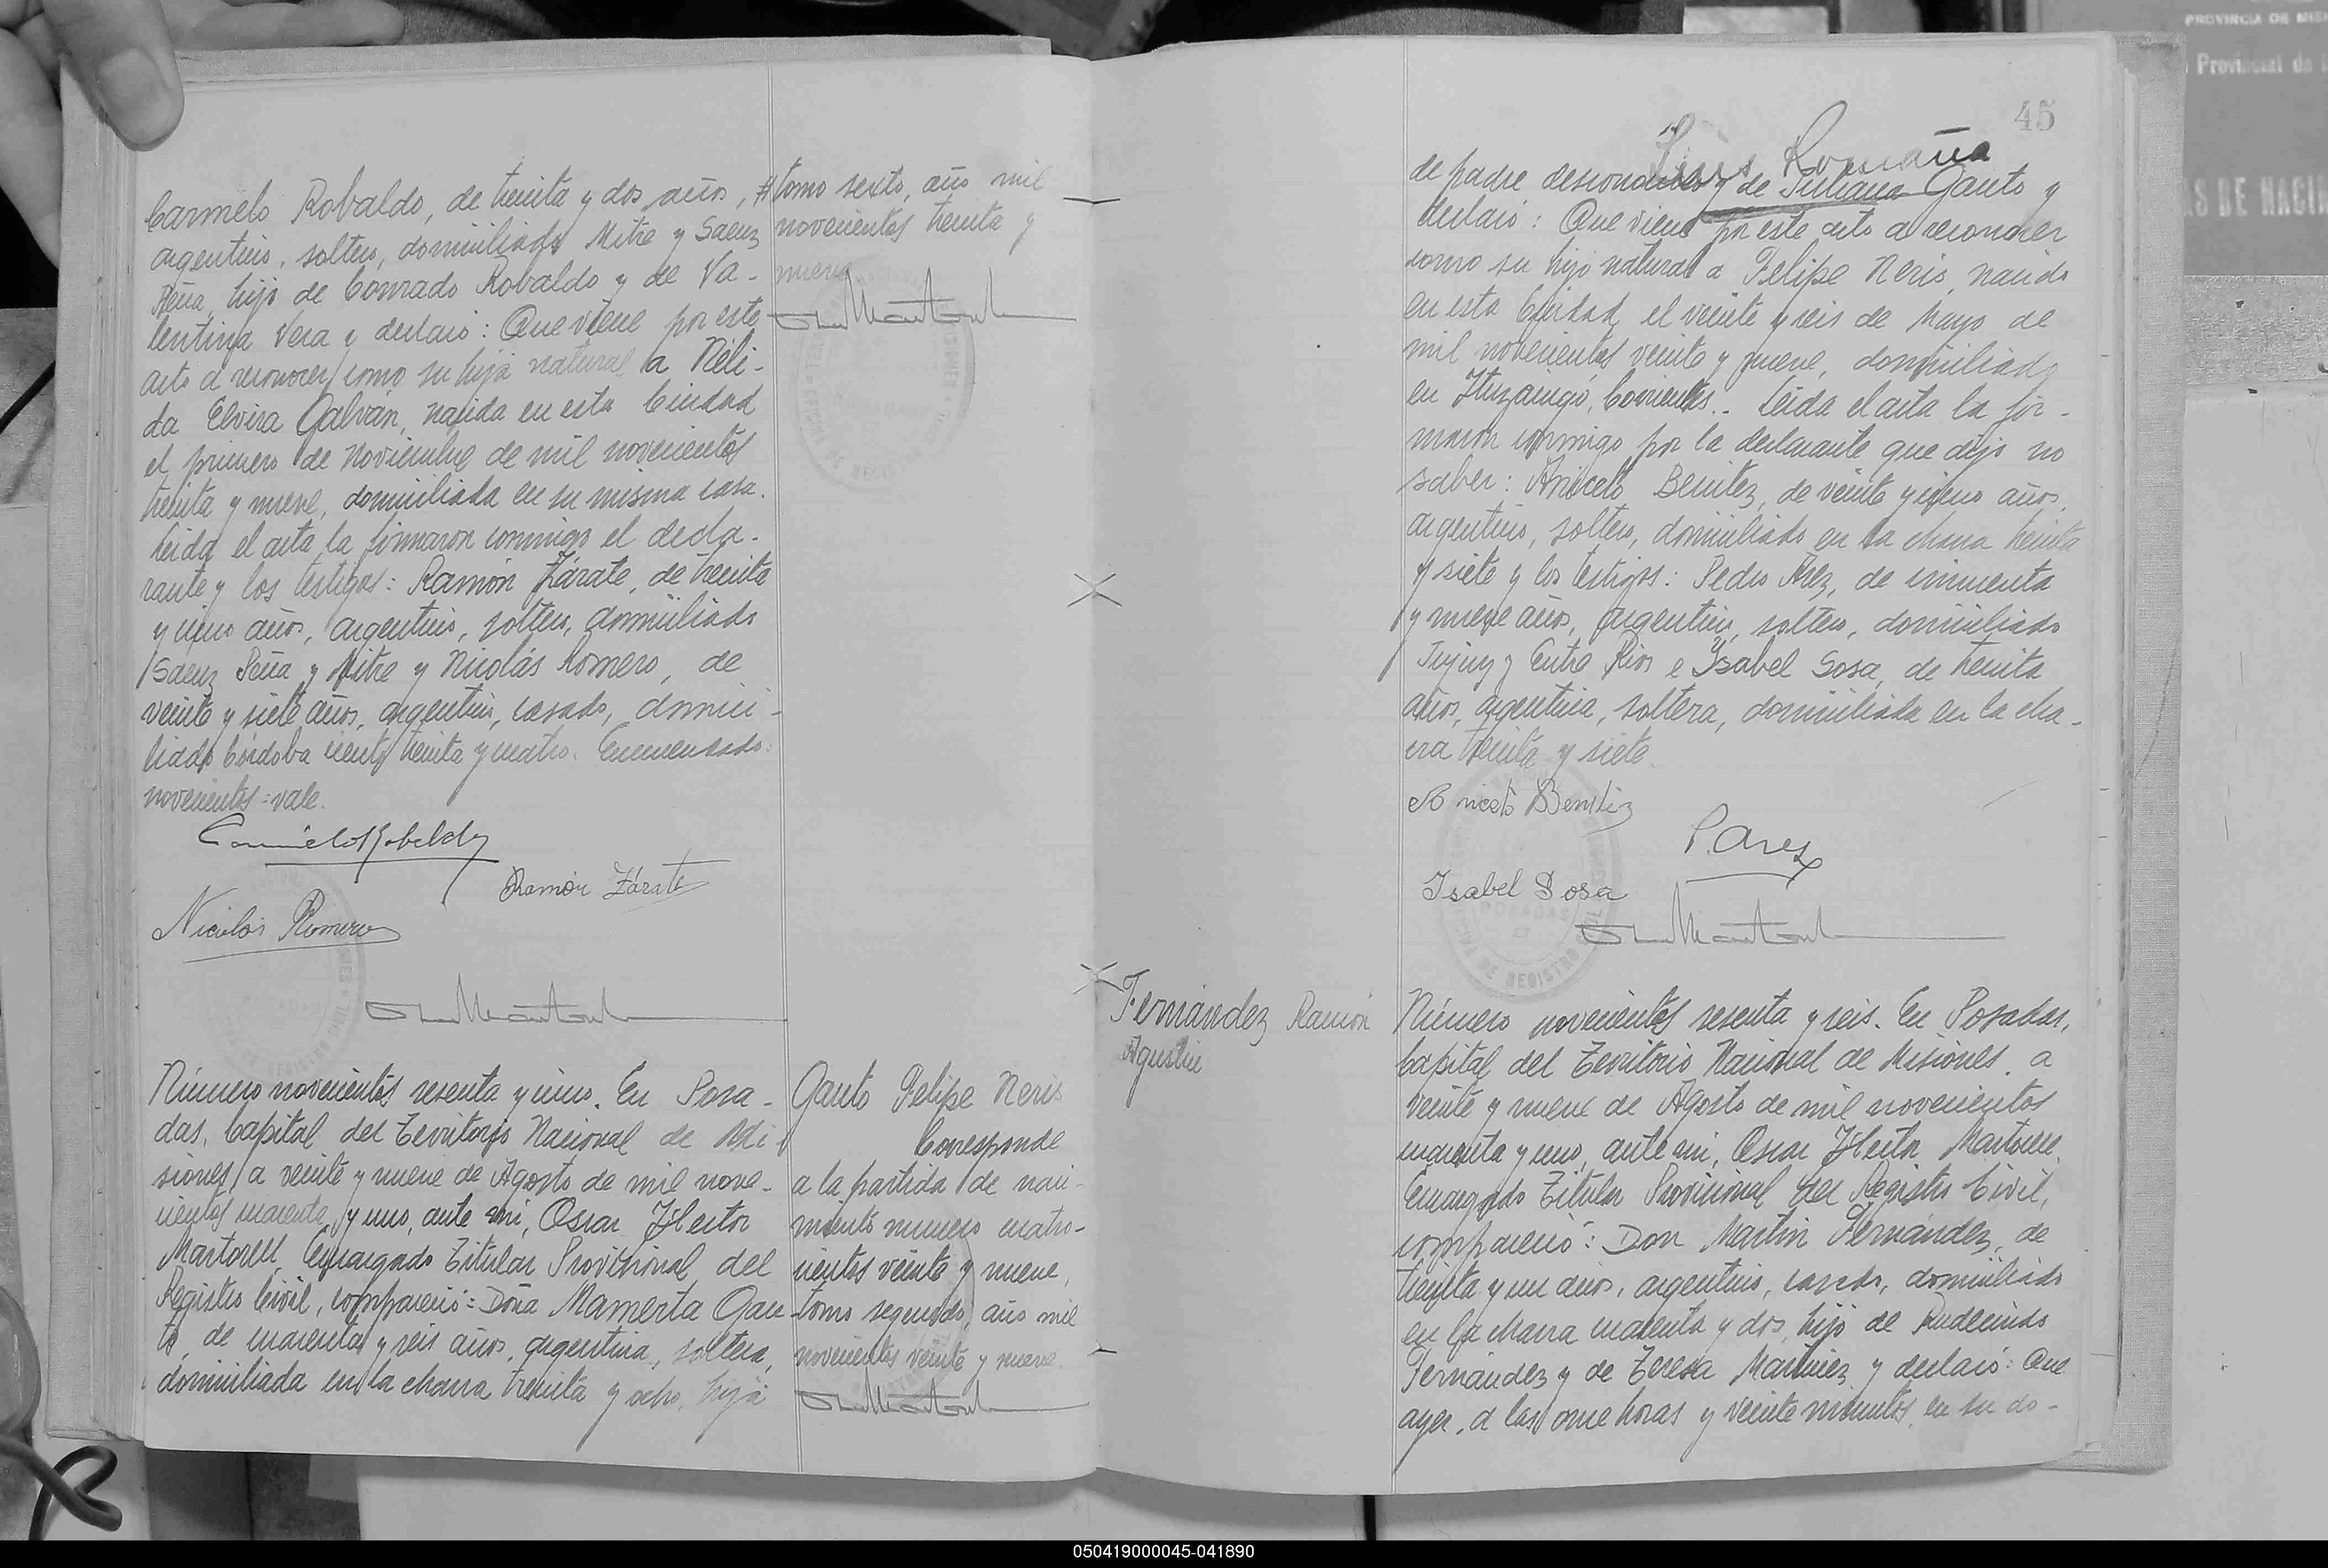 Carmelo Robaldo, de treinta y dos años,
argentino, soltero, domiciliado Mitre y Saenz
Peña, hijo de Conrado Robaldo y de Va-
lentina Vera y declaró: Que viene por este
acto a reconocer como su hija natural a Néli-
da Elvira Galván, nacida en esta Ciudad
el primero de Noviembre de mil novecientos
treinta y nueve, domiciliada en su misma casa.
Leida el acta la firmaron conmigo el decla-
rante y los testigos: Ramón Zárate, de treinta
y cinco años, argentino, soltero, domiciliado
Saenz Peña y Mitre y Nicolás Romero, de
veinte y siete años, argentino, casado, domici-
liado Córdoba ciento treinta y cuatro. Enmendado:
novecientos=vale.
Carmelo Robaldo
Ramón Zárate
Nicolás Romero
# tomo sexto, año mil
novecientos treinta y
nueve
Número novecientos sesenta y cinco. En Posa-
das, Capital del Territorio Nacional de Mi-
siones, a veinte y nueve de Agosto de mil nove-
cientos cuarenta y uno, ante mi, Oscar Héctor
Martorell, Encargado Titular Provisional del
Registro Civil, compareció: Doña Mamerta Gau-
to, de cuarenta y seis años, argentina, soltera,
domiciliada en la chacra treinta y ocho, hija
Gauto Felipe Neris
Corresponde
a la partida de naci-
miento número cuatro-
cientos veinte y nueve,
tomo segundo, año mil
novecientos veinte y nueve.
45
Romaña
de padre desconocido y de Juliana Gauto y
declaró: Que viene por este acto a reconocer
como su hijo natural a Felipe Neris, nacido
en esta Ciudad, el veinte y seis de Mayo de
mil novecientos veinte y nueve, domiciliado
en Ituzaingó, Corrientes.. Leida el acta la fir-
maron conmigo por la declarante que dijo no
saber: Aniceto Benitez, de veinte y cinco años,
argentino, soltero, domiciliado en la chacra treinta
y siete y los testigos: Pedro Arez, de cincuenta
y nueve años, argentino, soltero, domiciliado
Jujuy y Entre Rios e Isabel Sosa, de treinta
años, argentina, soltera, domiciliada en la cha-
cra treinta y siete.
Aniceto Benitez
P. Arez
Isabel Sosa
Fernández Ramón
Agustín
Número novecientos sesenta y seis. En Posadas,
Capital del Territorio Nacional de Misiones, a
veinte y nueve de Agosto de mil novecientos
cuarenta y uno, ante mi, Oscar Héctor Martorell,
Encargado Titular Provisional del Registro Civil,
compareció: Don Martin Fernández, de
treinta y un años, argentino, casado, domiciliado
en la chacra cuarenta y dos, hijo de Rudecindo
Fernández y de Teresa Martinez y declaró: Que
ayer, a las once horas y veinte minutos, en su do-
PROVINCIA DE MIS
Provincial de
AS DE NACIM
050419000045-041890